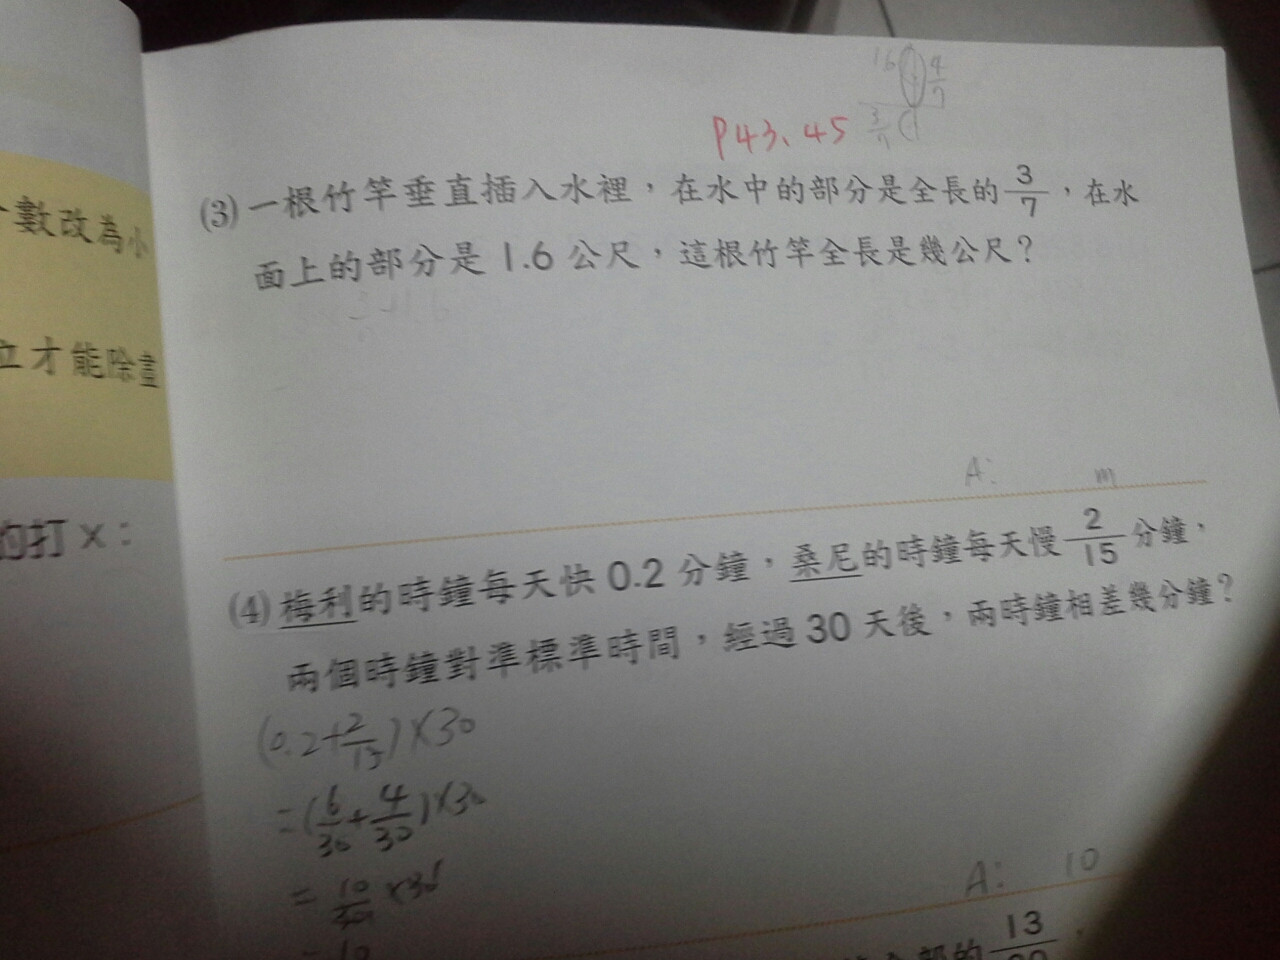 個數改為小
立才能除盡
的打×：
16 4/7
3/7
P43、45
(3) 一根竹竿垂直插入水裡，在水中的部分是全長的 3/7，在水
面上的部分是 1.6 公尺，這根竹竿全長是幾公尺？
A: m
(4) 梅利的時鐘每天快 0.2 分鐘，桑尼的時鐘每天慢 2/15 分鐘，
兩個時鐘對準標準時間，經過 30 天後，兩時鐘相差幾分鐘？
(0.2+2/15)×30
=(6/30+4/30)×30
=10/30×30
=10
A: 10
部的 13